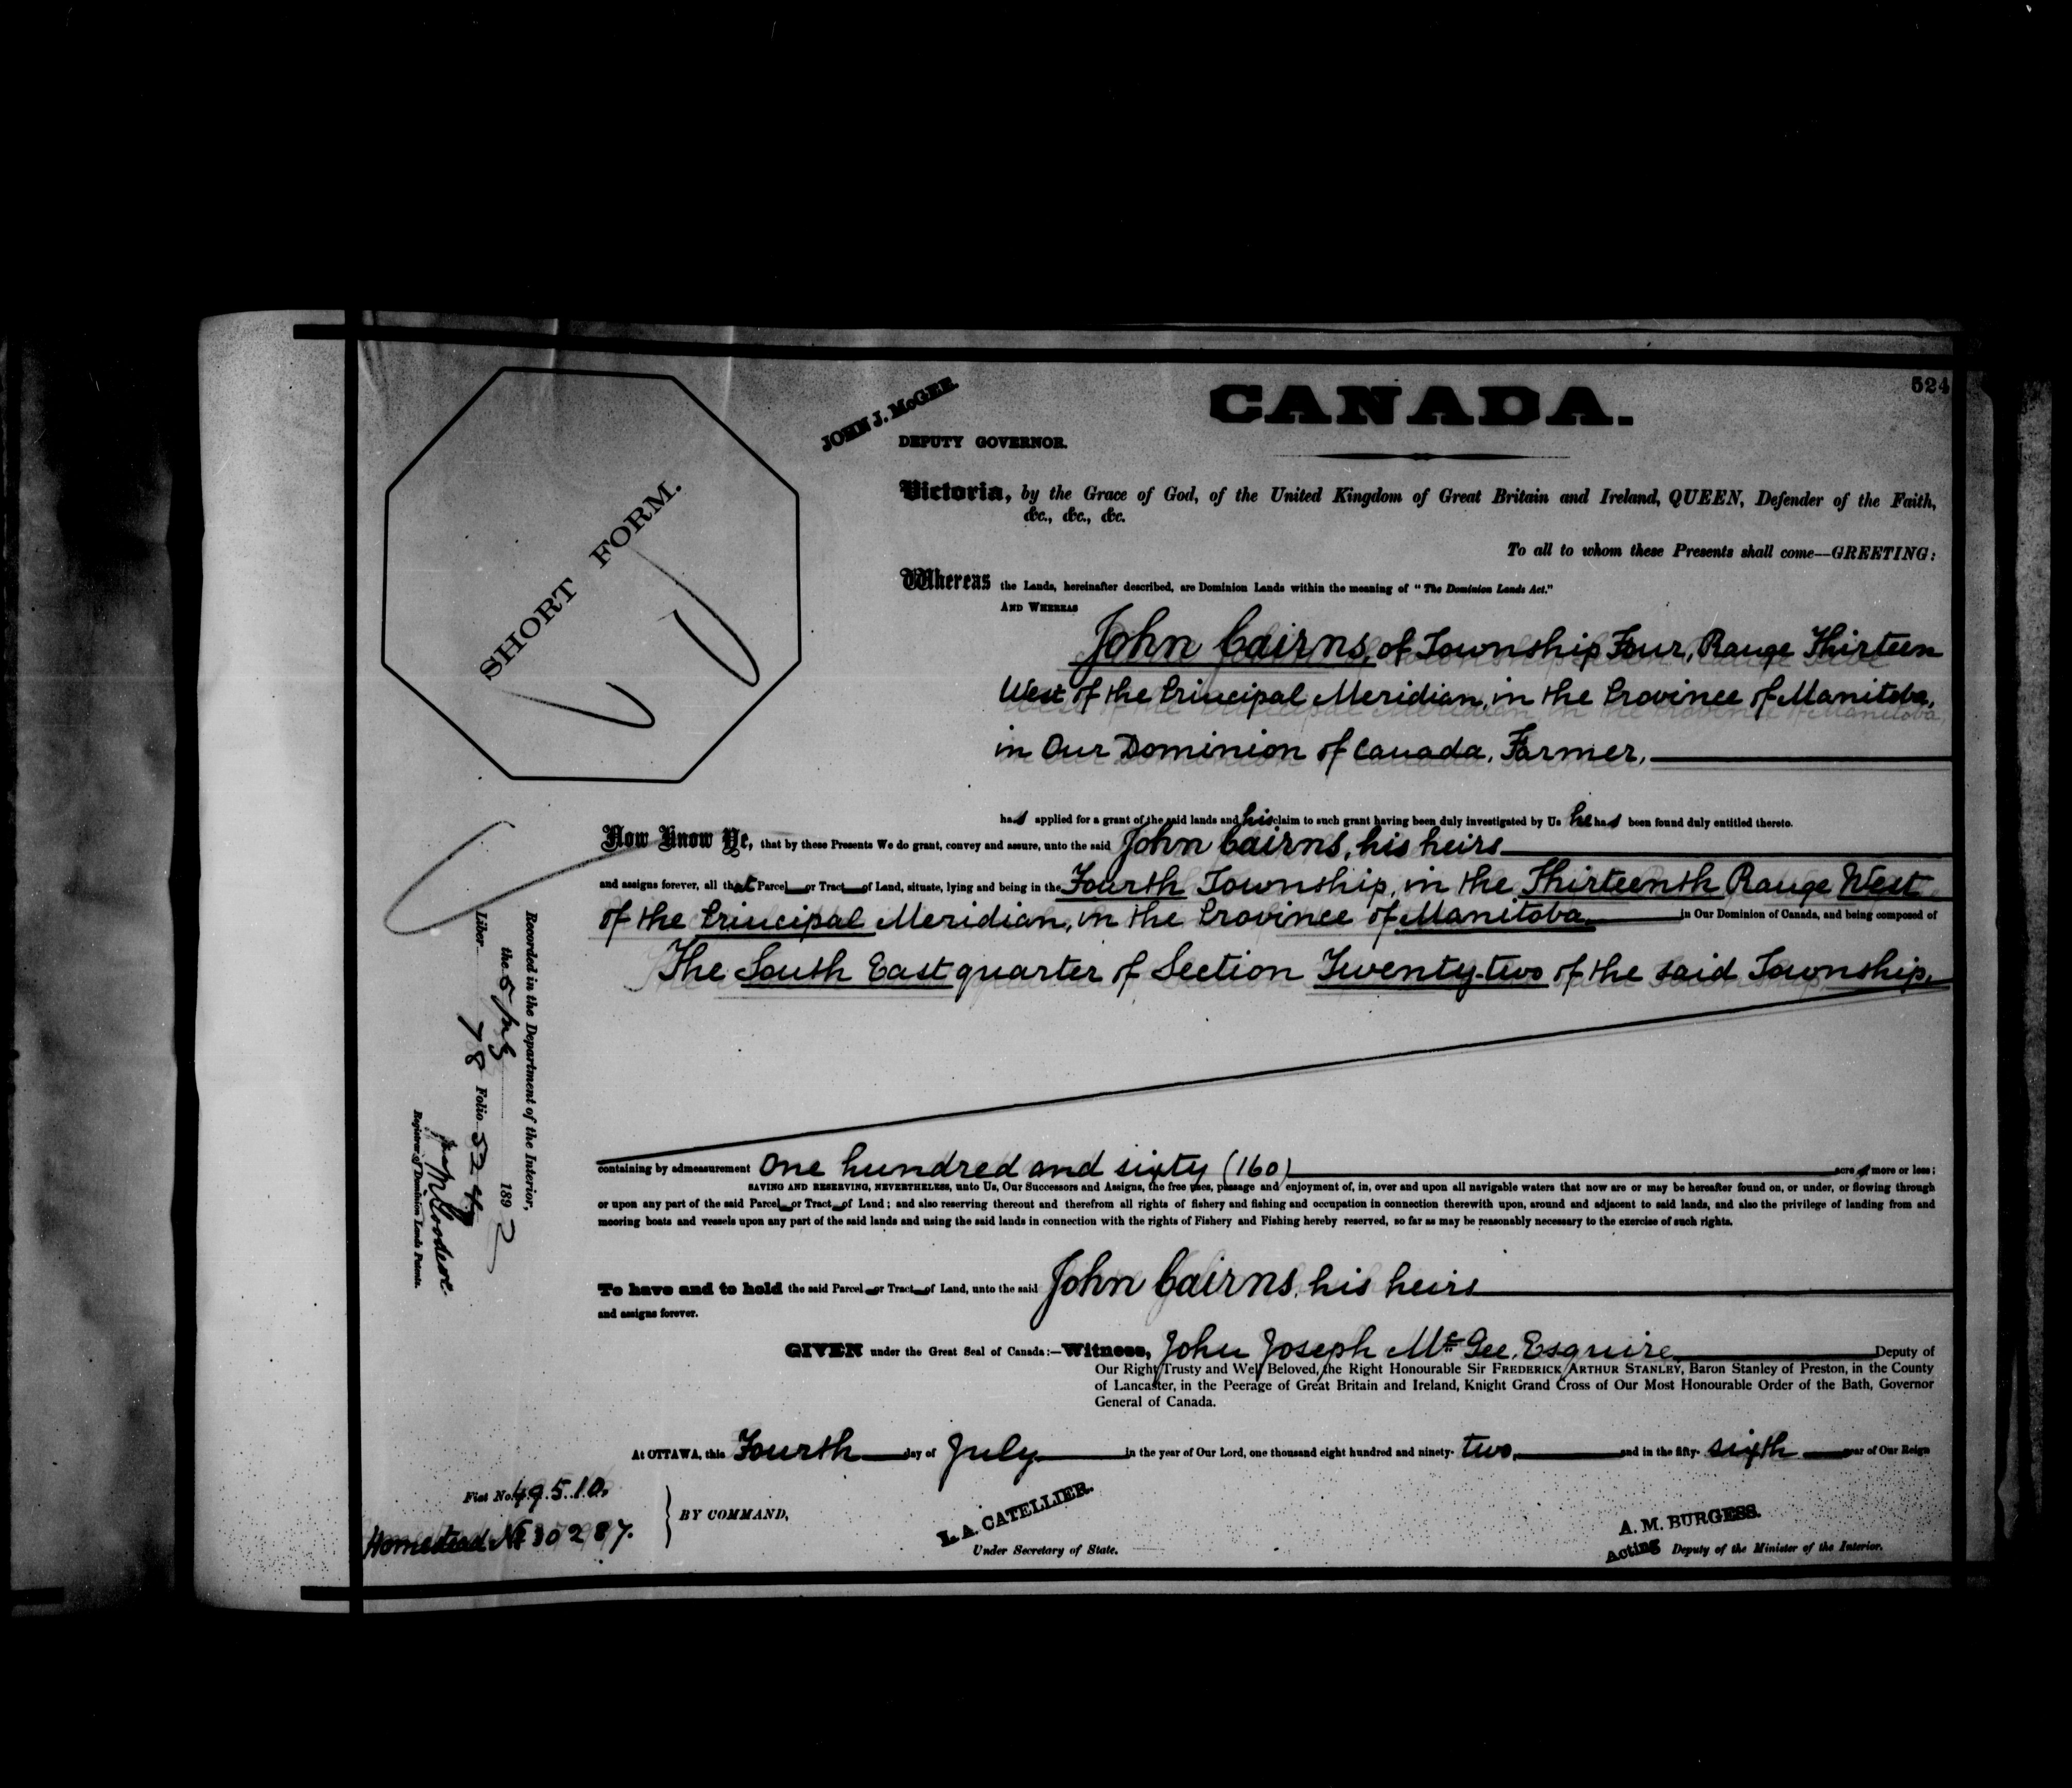 524
CANADA.
JOHN J. McGEE.
DEPUTY GOVERNOR.
SHORT FORM.
Victoria, by the Grace of God, of the United Kingdom of Great Britain and Ireland, QUEEN, Defender of the Faith,
&c., &c., &c.
To all to whom these Presents shall come—GREETING:
Whereas the Lands, hereinafter described, are Dominion Lands within the meaning of "The Dominion Lands Act."
AND WHEREAS
John Cairns, of Township Four, Range Thirteen
West of the Principal Meridian, in the Province of Manitoba,
in Our Dominion of Canada, Farmer,
has applied for a grant of the said lands and his claim to such grant having been duly investigated by Us he has been found duly entitled thereto.
Now Know Ye, that by these Presents We do grant, convey and assure, unto the said John Cairns, his heirs
and assigns forever, all that Parcel or Tract of Land, situate, lying and being in the Fourth Township, in the Thirteenth Range West
of the Principal Meridian, in the Province of Manitoba in Our Dominion of Canada, and being composed of
The South East quarter of Section Twenty-two of the said Township,
containing by admeasurement One hundred and sixty (160) acres more or less;
SAVING AND RESERVING, NEVERTHELESS, unto Us, Our Successors and Assigns, the free uses, passage and enjoyment of, in, over and upon all navigable waters that now are or may be hereafter found on, or under, or flowing through
or upon any part of the said Parcel or Tract of Land; and also reserving thereout and therefrom all rights of fishery and fishing and occupation in connection therewith upon, around and adjacent to said lands, and also the privilege of landing from and
mooring boats and vessels upon any part of the said lands and using the said lands in connection with the rights of Fishery and Fishing hereby reserved, so far as may be reasonably necessary to the exercise of such rights.
To have and to hold the said Parcel or Tract of Land, unto the said John Cairns, his heirs
and assigns forever.
GIVEN under the Great Seal of Canada:—Witness, John Joseph McGee, Esquire Deputy of
Our Right Trusty and Well Beloved, the Right Honourable Sir FREDERICK ARTHUR STANLEY, Baron Stanley of Preston, in the County
of Lancaster, in the Peerage of Great Britain and Ireland, Knight Grand Cross of Our Most Honourable Order of the Bath, Governor
General of Canada.
At OTTAWA, this Fourth day of July in the year of Our Lord, one thousand eight hundred and ninety-two, and in the fifty-sixth year of Our Reign
Fiat No. 49510.
Homestead No 30287.
BY COMMAND,
L. A. CATELLIER.
Under Secretary of State.
A. M. BURGESS.
Acting Deputy of the Minister of the Interior.
Recorded in the Department of the Interior,
the 5 1892
Liber 78 Folio 524
Registrar of Dominion Lands Patents.